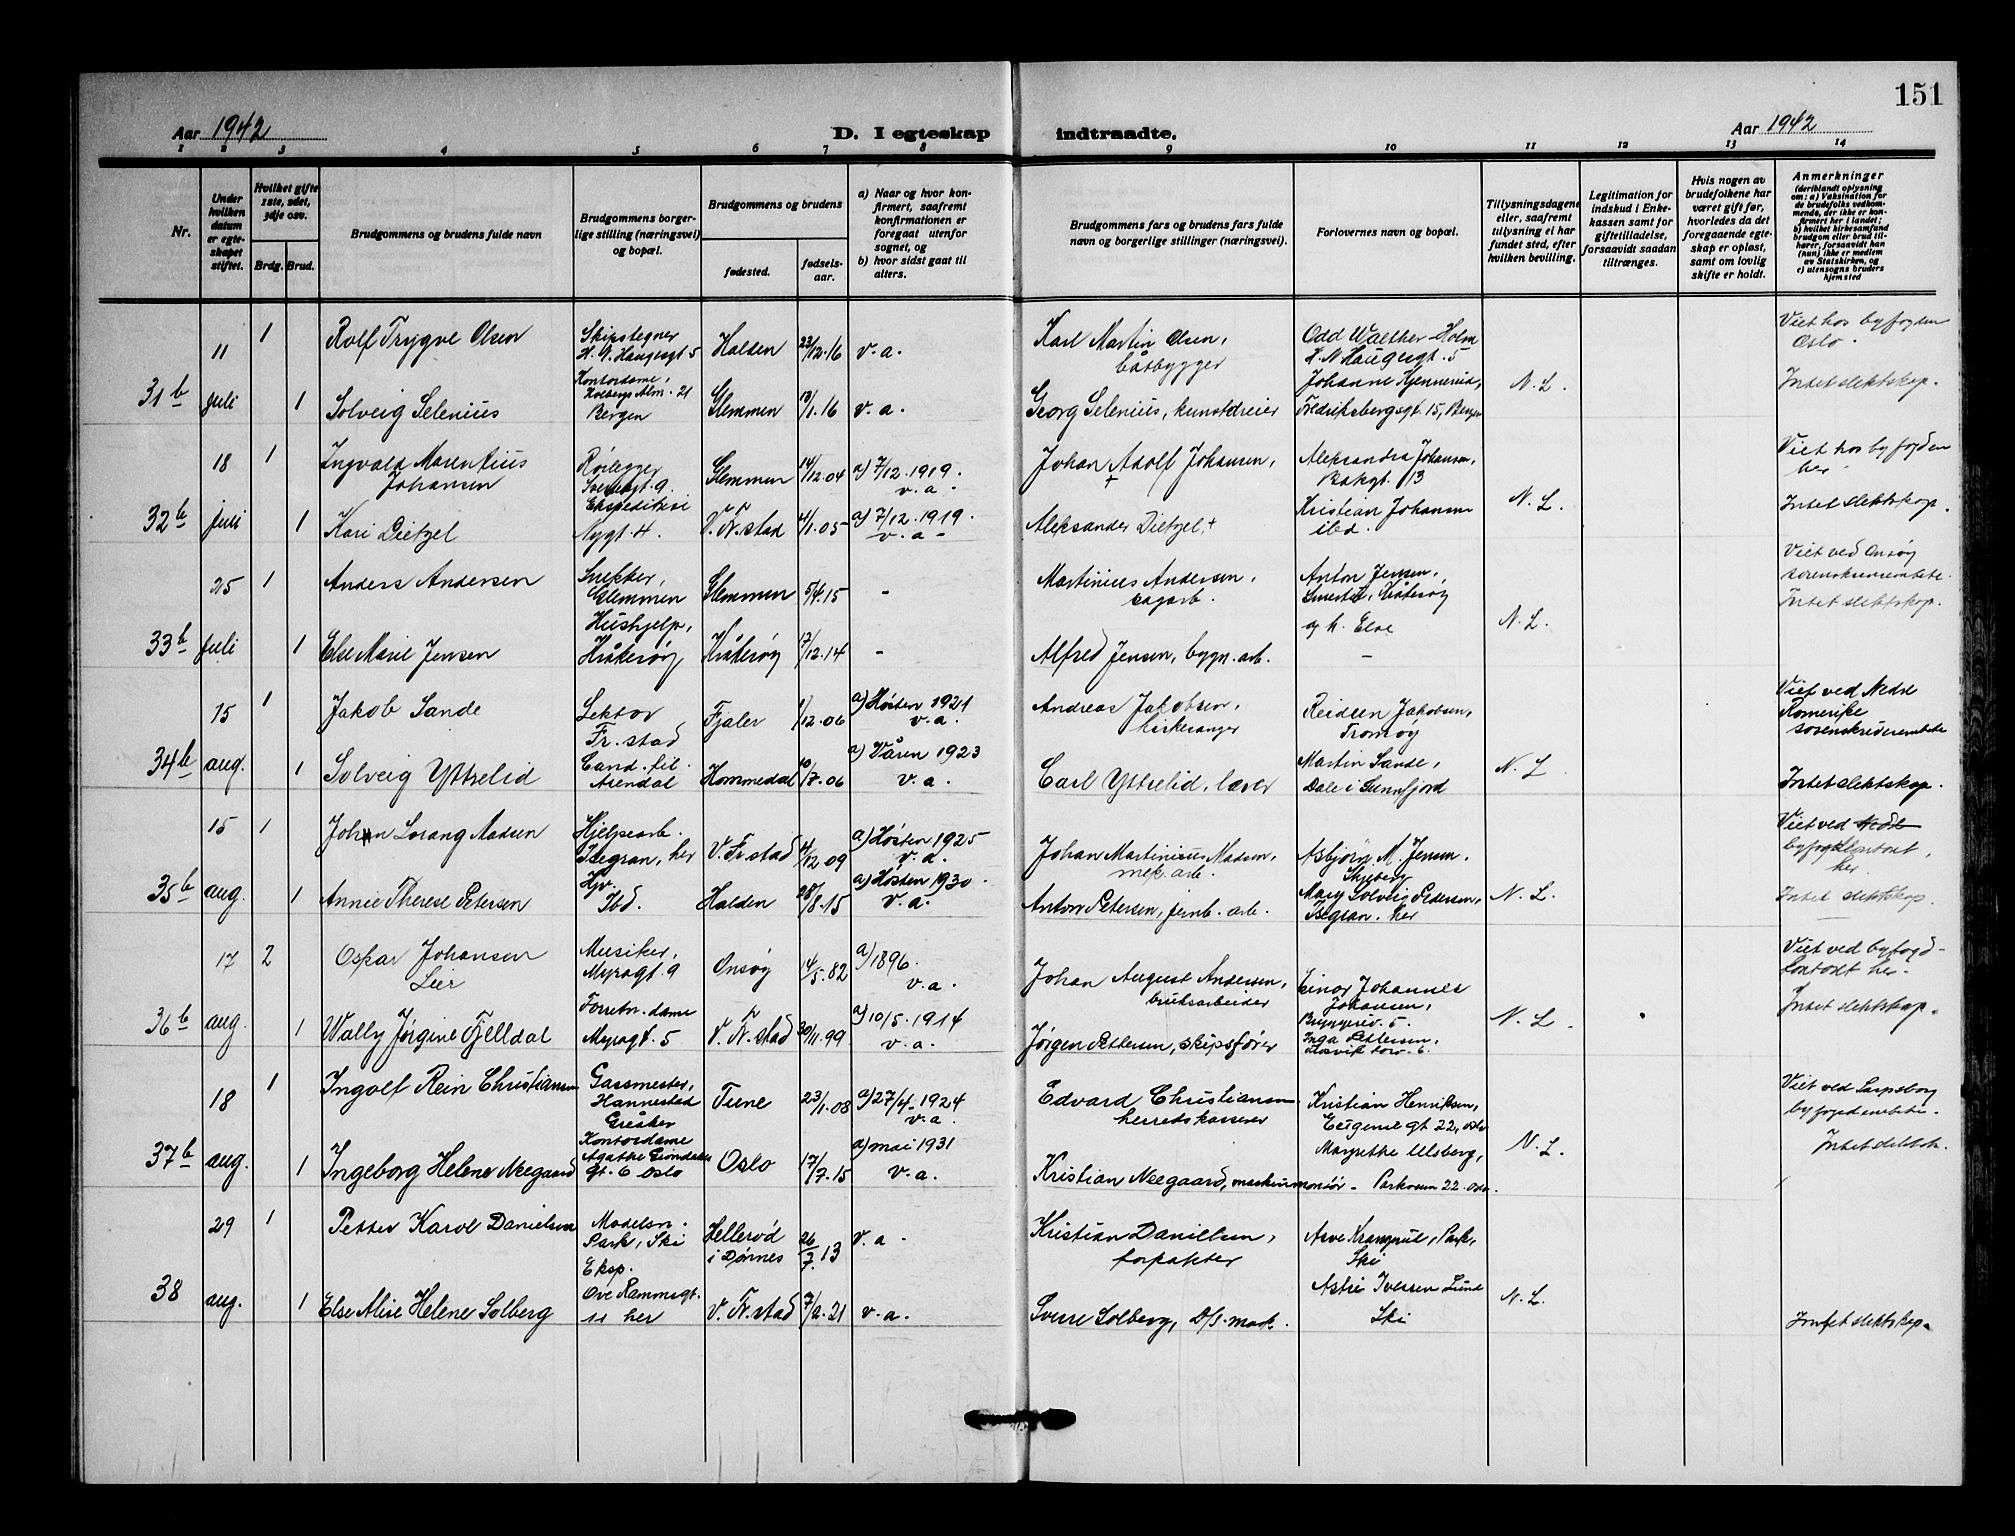 151
Aar 1942
D. I egteskap indtraadte.
Aar 1942
1 2 3 4 5 6 7 8 9 10 11 12 13 14
Nr.
Under hvilken datum er egteskapet stiftet.
Hvilket gifte 1ste, 2det, 3dje osv.
Brdg. Brud.
Brudgommens og brudens fulde navn
Brudgommens borgerlige stilling (næringsvei) og bopæl.
Brudgommens og brudens
fødested.
fødselsaar.
a) Naar og hvor konfirmert, saafremt konfirmationen er foregaat utenfor sognet, og
b) hvor sidst gaat til alters.
Brudgommens fars og brudens fars fulde navn og borgerlige stillinger (næringsvei).
Forlovernes navn og bopæl.
Tillysningsdagene eller, saafremt tilysning ei har fundet sted, efter hvilken bevilling.
Legitimation for indskud i Enkekassen samt for giftetilladelse, forsaavidt saadan tiltrænges.
Hvis nogen av brudefolkene har været gift før, hvorledes da det foregaaende egteskap er opløst, samt om lovlig skifte er holdt.
Anmerkninger
(deriblandt oplysning om: a) Vaksination for de brudefolks vedkommende, der ikke er konfirmert her i landet; b) hvilket kirkesamfund brudgom eller brud tilhører, forsaavidt han (hun) ikke er medlem av Statskirken, og c) utensogns bruders hjemsted
11 1 Rolf Trygve Olsen Skipstegner H. N. Haugesgt 5 Halden 23/12.16 v.a. Karl Martin Olsen, båtbygger Odd Walther Holm H. N Haugesgt. 5 Viet hos byfogden Oslo.
31b juli 1 Solveig Selenius Kontordame, Kolbergs Alm. 21 Bergen Glemmen 13/1.16 v.a. Georg Selenius, kunstdreier Johanne Fredriksbergsgt. 15, Bergen N. L. Intet slektskap.
18 1 Ingvald Marentius Johansen Rørlegger Glemmen 14/12.04 a) 7/12.1919. v.a. Johan Adolf Johansen, + Aleksandra Johansen, Bakgt. 13 Viet hos byfogden her
32b juli 1 Kari Dietzel Nygt. 4. V. Fr.stad 4/1.05 a) 7/12.1919. v.a. Aleksander Dietzel + Kristian Johansen ibd. N. L. Intet slektskap.
25 1 Anders Andersen Snekker, Glemmen Glemmen 5/4.15 - Martinius Andersen, sagarb. Anton Jensen, Kråkerøy og h. Else Viet ved Onsøy sorenskriverembete. Intet slektskap.
33b juli 1 Else Marie Jensen Hushjelp, Kråkerøy Kråkerøy 17/12.14 - Alfred Jensen, bygn.arb. - N. L.
15 1 Jakob Sande Lektor Fr.stad Fjaler 1/12.06 a) Høsten 1921 v.a. Andreas Jakobsen, kirkesanger Reidun Jakobsen, Tromøy Viet ved Nedre Romerike sorenskriverembete
34b aug. 1 Solveig Yttrelid Cand. fil. Arendal Hommedal 10/7.06 a) Våren 1923 v.a. Carl Yttrelid, lærer Martin Sande, Dale i Sunnfjord N. L. Intet slektskap.
15 1 Johan Lorang Madsen Hjelpearb. Isegran, her V. Fr.stad 4/12 09 a) Høsten 1925 v.a. Johan Martinius Madsen, mek. arb. Asbjørn M. Jensen. Skjeberg Viet ved Nedr byfogdkontoret, her.
35b aug. 1 Annie Therese Petersen Hjv. Ibd. Halden 28/8.15 a) Høsten 1930. v.a. Anton Petersen, jernb. arb. Mary Solveig Pedersen, Isegran. her N. L. Intet slektskap.
17 2 Oskar Johansen Lier Musiker, Myragt. 9 Onsøy 14/5.82 a) 1896. v.a. Johan August Andersen, bruksarbeider Einar Johannes Johansen, Bryggeriv. 5. Viet ved byfogdkontoret her.
36b aug. 1 Wally Jørgine Fjelldal Forretn. dame Myragt. 5 V. Fr.stad 30/11.99 a) 10/5.1914 v.a. Jørgen Pettersen, skipsfører Inga Pettersen, N. L. Intet slektskap.
18 1 Ingolf Rein Christiansen Gassmester, Hannestad Greåker Tune 23/1.08 a) 27/4.1924 v.a. Edvard Christiansen herredskasserer Kristian Henriksen, Eugenie gt 22, Oslo Viet ved Sarpsborg byfogdembete.
37b aug. 1 Ingeborg Helene Neegaard Kontordame Agathe Grøndahls Gt. 6 Oslo Oslo 17/7.15 a) mai 1931 v.a. Kristian Neegaard, maskinmontør. Margrethe Ulsberg, Parkveien 22. Oslo. N. L. Intet slektsk.
29 1 Petter Karol Danielsen Modelsn. Park, Ski Hellerød i Dørnes 26/7.13 v.a. Kristian Danielsen, forpakter Arve Park, Ski
38 aug. 1 Else Alise Helene Solberg Eksp. Ove Rammsgt. 11 her V. Fr.stad 7/2.21 v.a. Sverre Solberg, D/S. mask. Astri Iversen Lund Ski N. L. Intet slektskap.